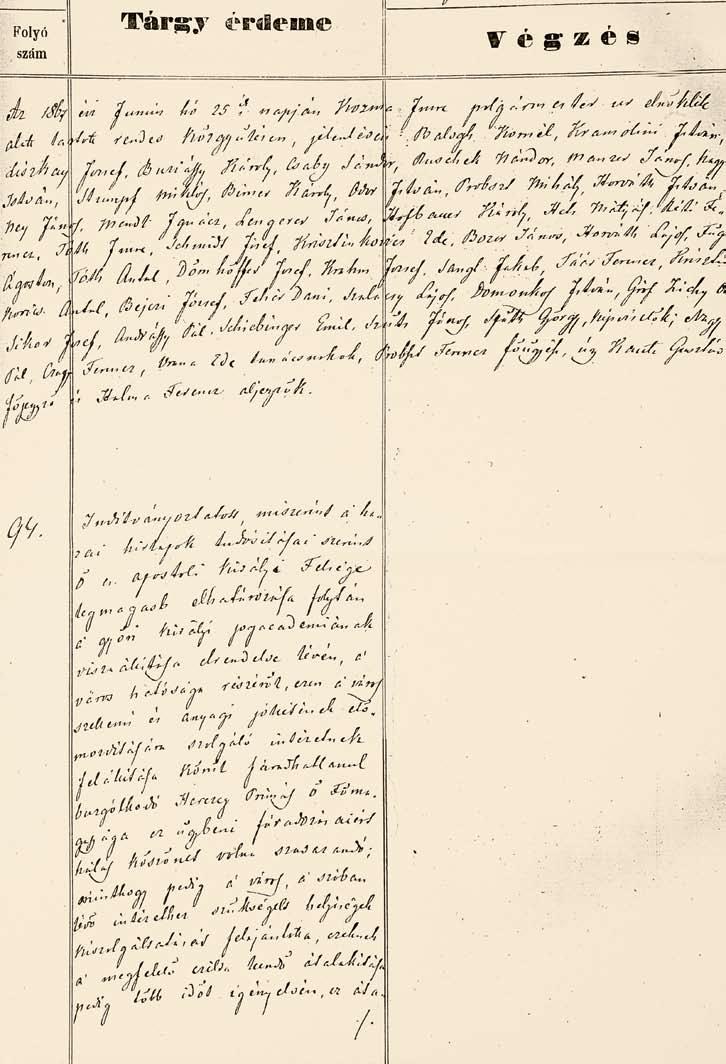 Folyó
szám
Tárgy érdeme
Végzés
Az 1867 évi Junius hó 25ik napján Kozma Imre polgármester ur elnöklete
alatt tartott rendes közgyülésen, jelenlévén: Balogh Kornél, Kramolini István,
József, Károly, Csaby Sándor, Ruschek Nándor, Manzer János, Nagy
István, Stumpf Miklós, Birner Károly, Odor István, Probszt Mihály, Horváth István,
Ney János, Wendt Ignácz, Lengerer János, Hofbauer Károly, Hets Mátyás, Réti Fe-
rencz, Tóth Imre, Schmidt József, Krisztinkovics Ede, Bozor János, Horváth Lajos,
Ágoston, Tóth Antal, Dömhöffer József, Krahm József, Jakab, Ferencz,
Antal, Bejczi József, Fehér Dani, Szalacsy Lajos, Domonkos István, Gróf Zichy
József, Andrássy Pál, Schiebinger Emil, János, György, képviselők; Nagy
Pál, Ferencz, Ede tanácsnokok, Probszt Ferencz főügyész, Gusztáv
főjegyző és Halma Ferencz aljegyzők.
94.
Indítványoztatott, miszerint a ha-
zai hirlapok tudósításai szerint
Ő cs. apostoli Királyi Felsége
legmagasb elhatározása folytán
a győri királyi jogacademiának
visszaállítása elrendelve lévén, a
város hatósága részéről, ezen a város
szellemi és anyagi jóllétének elő-
mozdítására szolgáló intézetnek
felállítása körül fáradhatlanul
buzgólkodó Herczeg Primás Ő Főma-
gassága ez ügybeni fáradozásaiért
hálás köszönet volna szavazandó;
minthogy pedig a város, a szóban
lévő intézethez szükséges helyiségek
kiszolgáltatását felajánlotta, ezeknek
a megfelelő czélra leendő átalakítása
pedig több időt igényelvén, ez áta-
./.